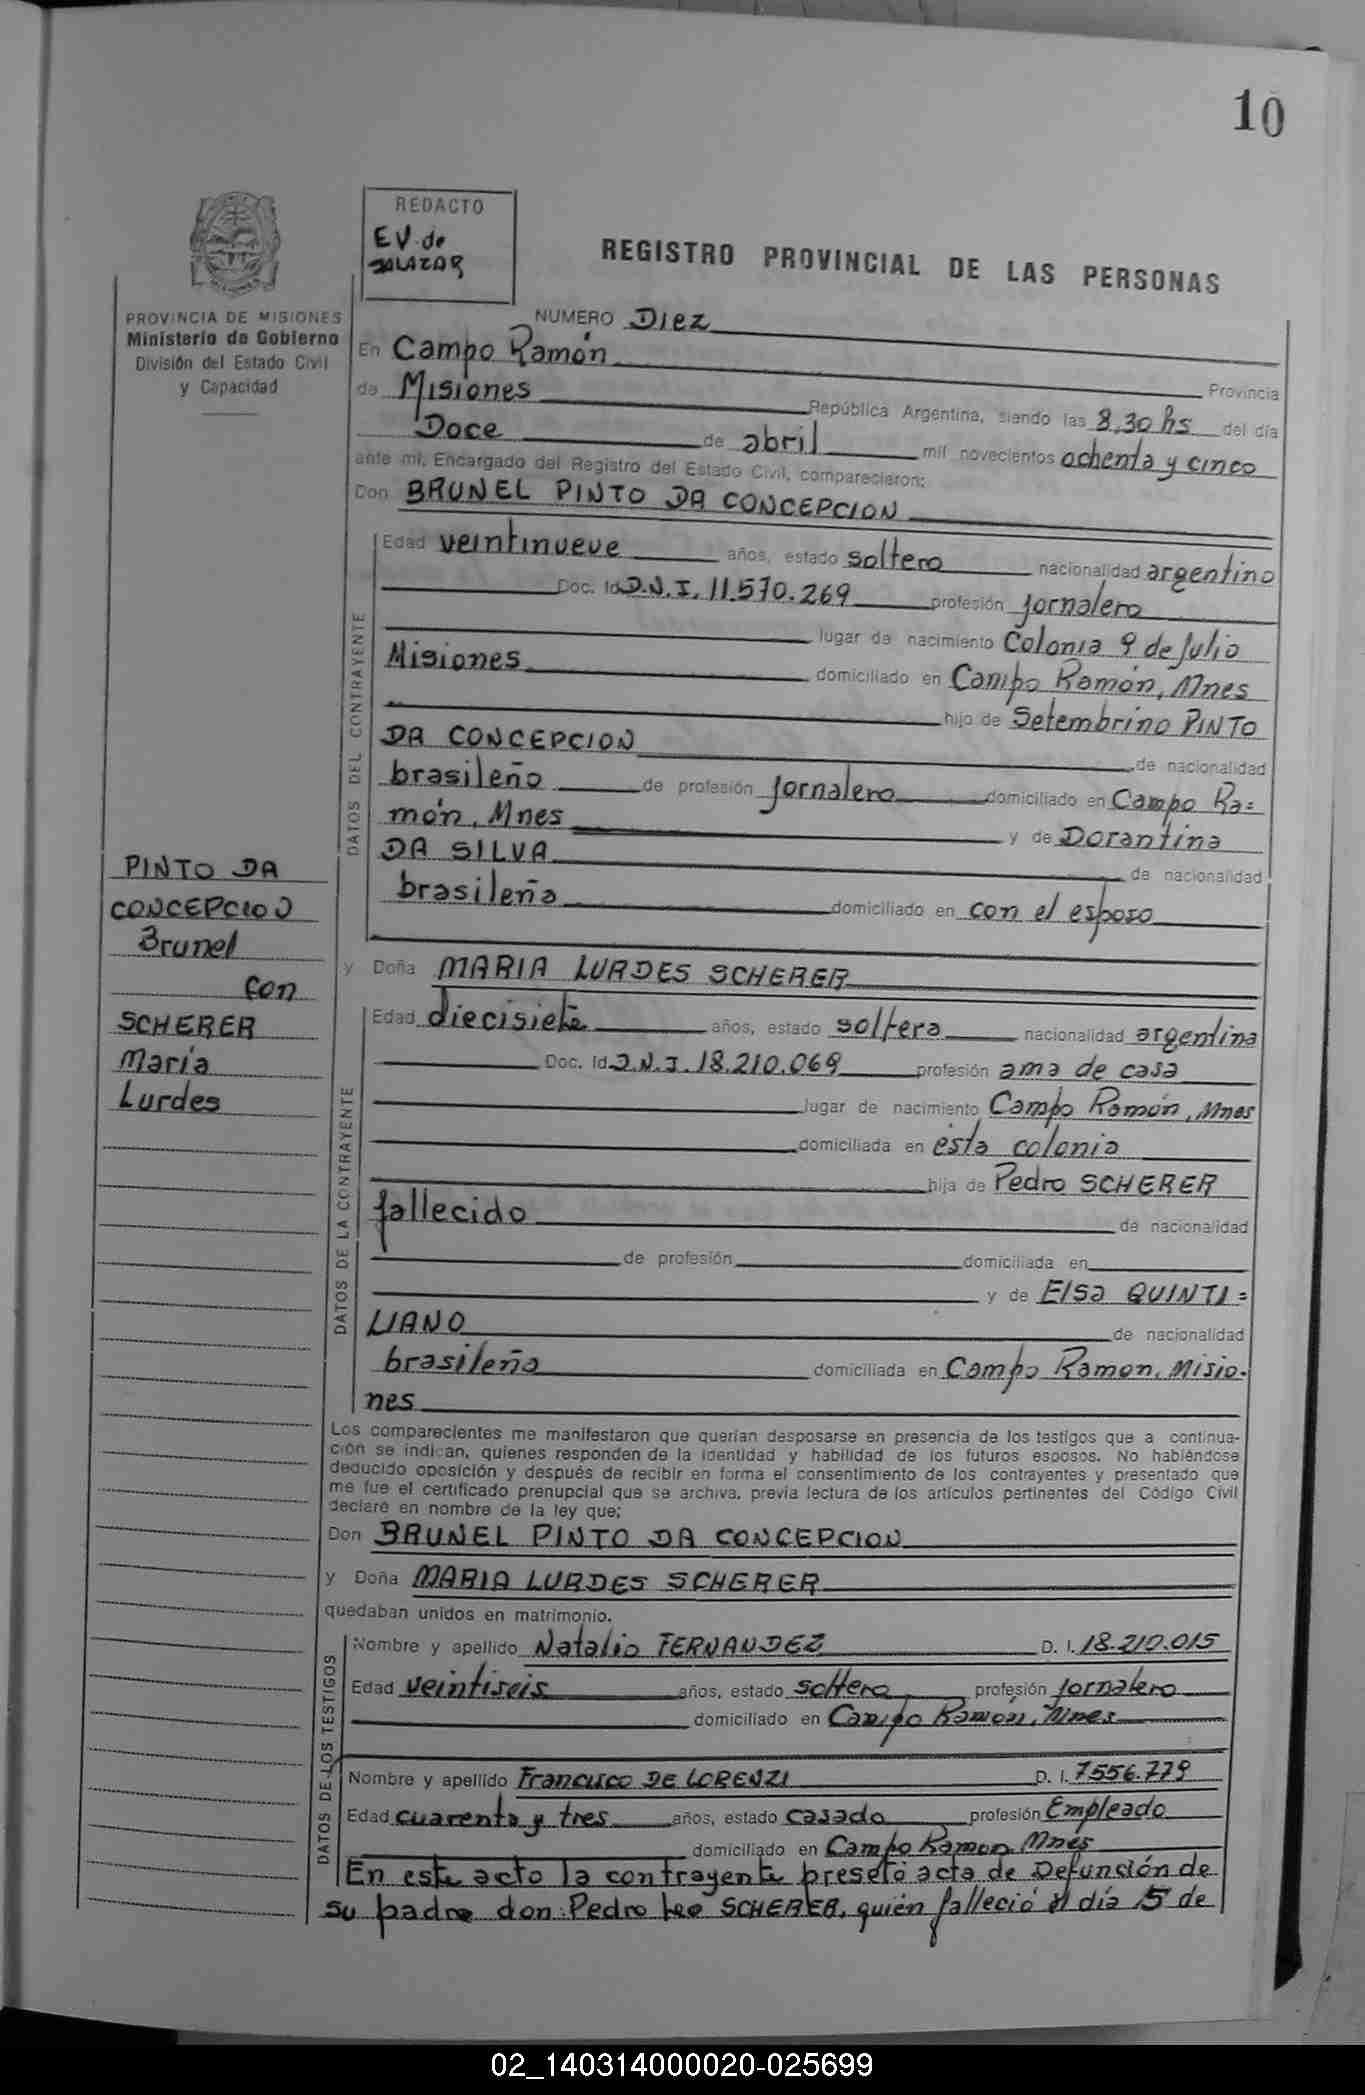 10
REDACTO
EV. de
SALAZAR
REGISTRO PROVINCIAL DE LAS PERSONAS
PROVINCIA DE MISIONES
Ministerio de Gobierno
División del Estado Civil
y Capacidad
NUMERO Diez
En Campo Ramón Provincia
de Misiones República Argentina, siendo las 8,30 hs del día
Doce de abril mil novecientos ochenta y cinco
ante mí, Encargado del Registro del Estado Civil, comparecieron:
Don BRUNEL PINTO DA CONCEPCION
DATOS DEL CONTRAYENTE
Edad veintinueve años, estado soltero nacionalidad argentino
Doc. Id D.N.I. 11.570.269 profesión jornalero
lugar de nacimiento Colonia 9 de Julio
Misiones domiciliado en Campo Ramón, Mnes
hijo de Setembrino PINTO
DA CONCEPCION de nacionalidad
brasileño de profesión jornalero domiciliado en Campo Ra=
món, Mnes y de Dorantina
DA SILVA de nacionalidad
brasileña domiciliado en con el esposo
PINTO DA
CONCEPCION
Brunel
con
SCHERER
María
Lurdes
y Doña MARIA LURDES SCHERER
DATOS DE LA CONTRAYENTE
Edad diecisiete años, estado soltera nacionalidad argentina
Doc. Id D.N.I. 18.210.069 profesión ama de casa
lugar de nacimiento Campo Ramón, Mnes
domiciliada en ésta colonia
hija de Pedro SCHERER
fallecido de nacionalidad
de profesión domiciliada en
y de Elsa QUINTI=
LIANO de nacionalidad
brasileña domiciliada en Campo Ramon, Misio-
nes
Los comparecientes me manifestaron que querían desposarse en presencia de los testigos que a continua-
ción se indican, quienes responden de la identidad y habilidad de los futuros esposos. No habiéndose
deducido oposición y después de recibir en forma el consentimiento de los contrayentes y presentado que
me fue el certificado prenupcial que se archiva, previa lectura de los artículos pertinentes del Código Civil
declaré en nombre de la ley que;
Don BRUNEL PINTO DA CONCEPCION
y Doña MARIA LURDES SCHERER
quedaban unidos en matrimonio.
DATOS DE LOS TESTIGOS
Nombre y apellido Natalio FERNANDEZ D. I. 18.210.015
Edad veintiseis años, estado soltero profesión jornalero
domiciliado en Campo Ramón, Mnes
Nombre y apellido Francisco DE LORENZI D. I. 7556.779
Edad cuarenta y tres años, estado casado profesión Empleado
domiciliado en Campo Ramon Mnes
En este acto la contrayente presetó acta de Defunsión de
su padre don: Pedro Leo SCHERER, quién falleció el día 5 de
02_140314000020-025699